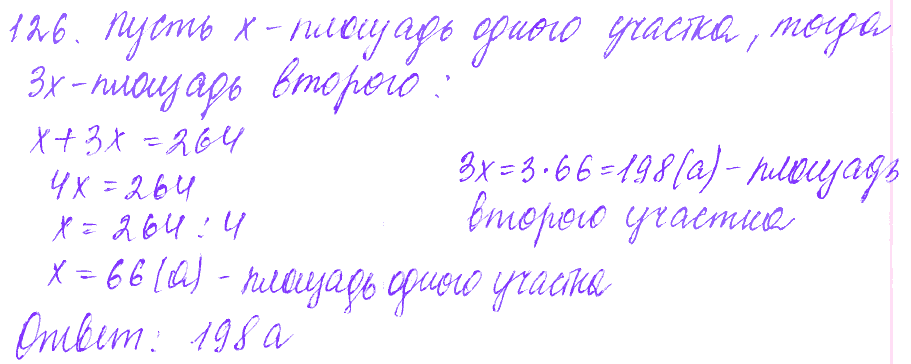 126. Пусть x - площадь одного участка, тогда
3x - площадь второго:
x + 3x = 264
4x = 264
x = 264 : 4
x = 66 (а) - площадь одного участка
3x = 3 · 66 = 198 (а) - площадь
второго участка
Ответ: 198 а